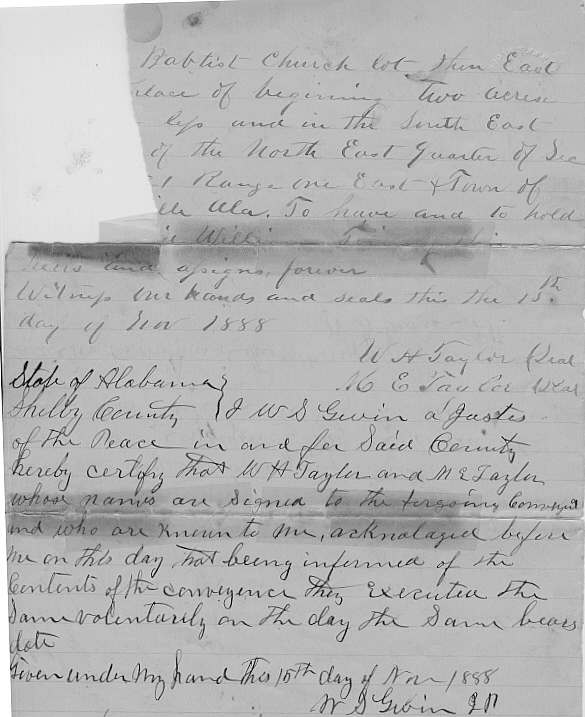 Babtist Church lot then East
place of begining two acres
less and in the South East
of the North East Quarter of Sec
1 Range one East & Town of
ille Ala. To have and to hold
William
heirs and asigns, forever
Witness our hands and seals this the 15th
day of Nov 1888
W H Taylor (Seal
M E Taylor (Seal
State of Alabama }
Shelby County } I W S Gwin a Justis
of the Peace in and for Said County
hereby certify that W H Taylor and M E Taylor
whose names are signed to the forgoing Conveyance
and who are known to me, acknolaged before
me on this day that being informed of the
Contents of the conveyence they Executed the
Same volentarily on the day the Same bears
date
Given under my hand this 15th day of Nov 1888
W S Gwin J P